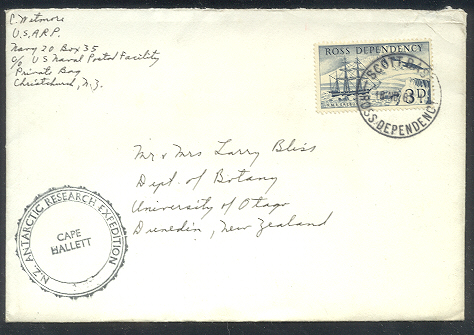 C. Wetmore
U.S.A.R.P.
Navy 20 Box 35
c/o U S Naval Postal Facility
Private Bag
Christchurch, N.Z.
ROSS DEPENDENCY
3D
SCOTT
ROSS DEPENDENCY
Mr & Mrs Larry Bliss
Dept. of Botany
University of Otago
Dunedin, New Zealand
N.Z. ANTARCTIC RESEARCH EXPEDITION
CAPE
HALLETT